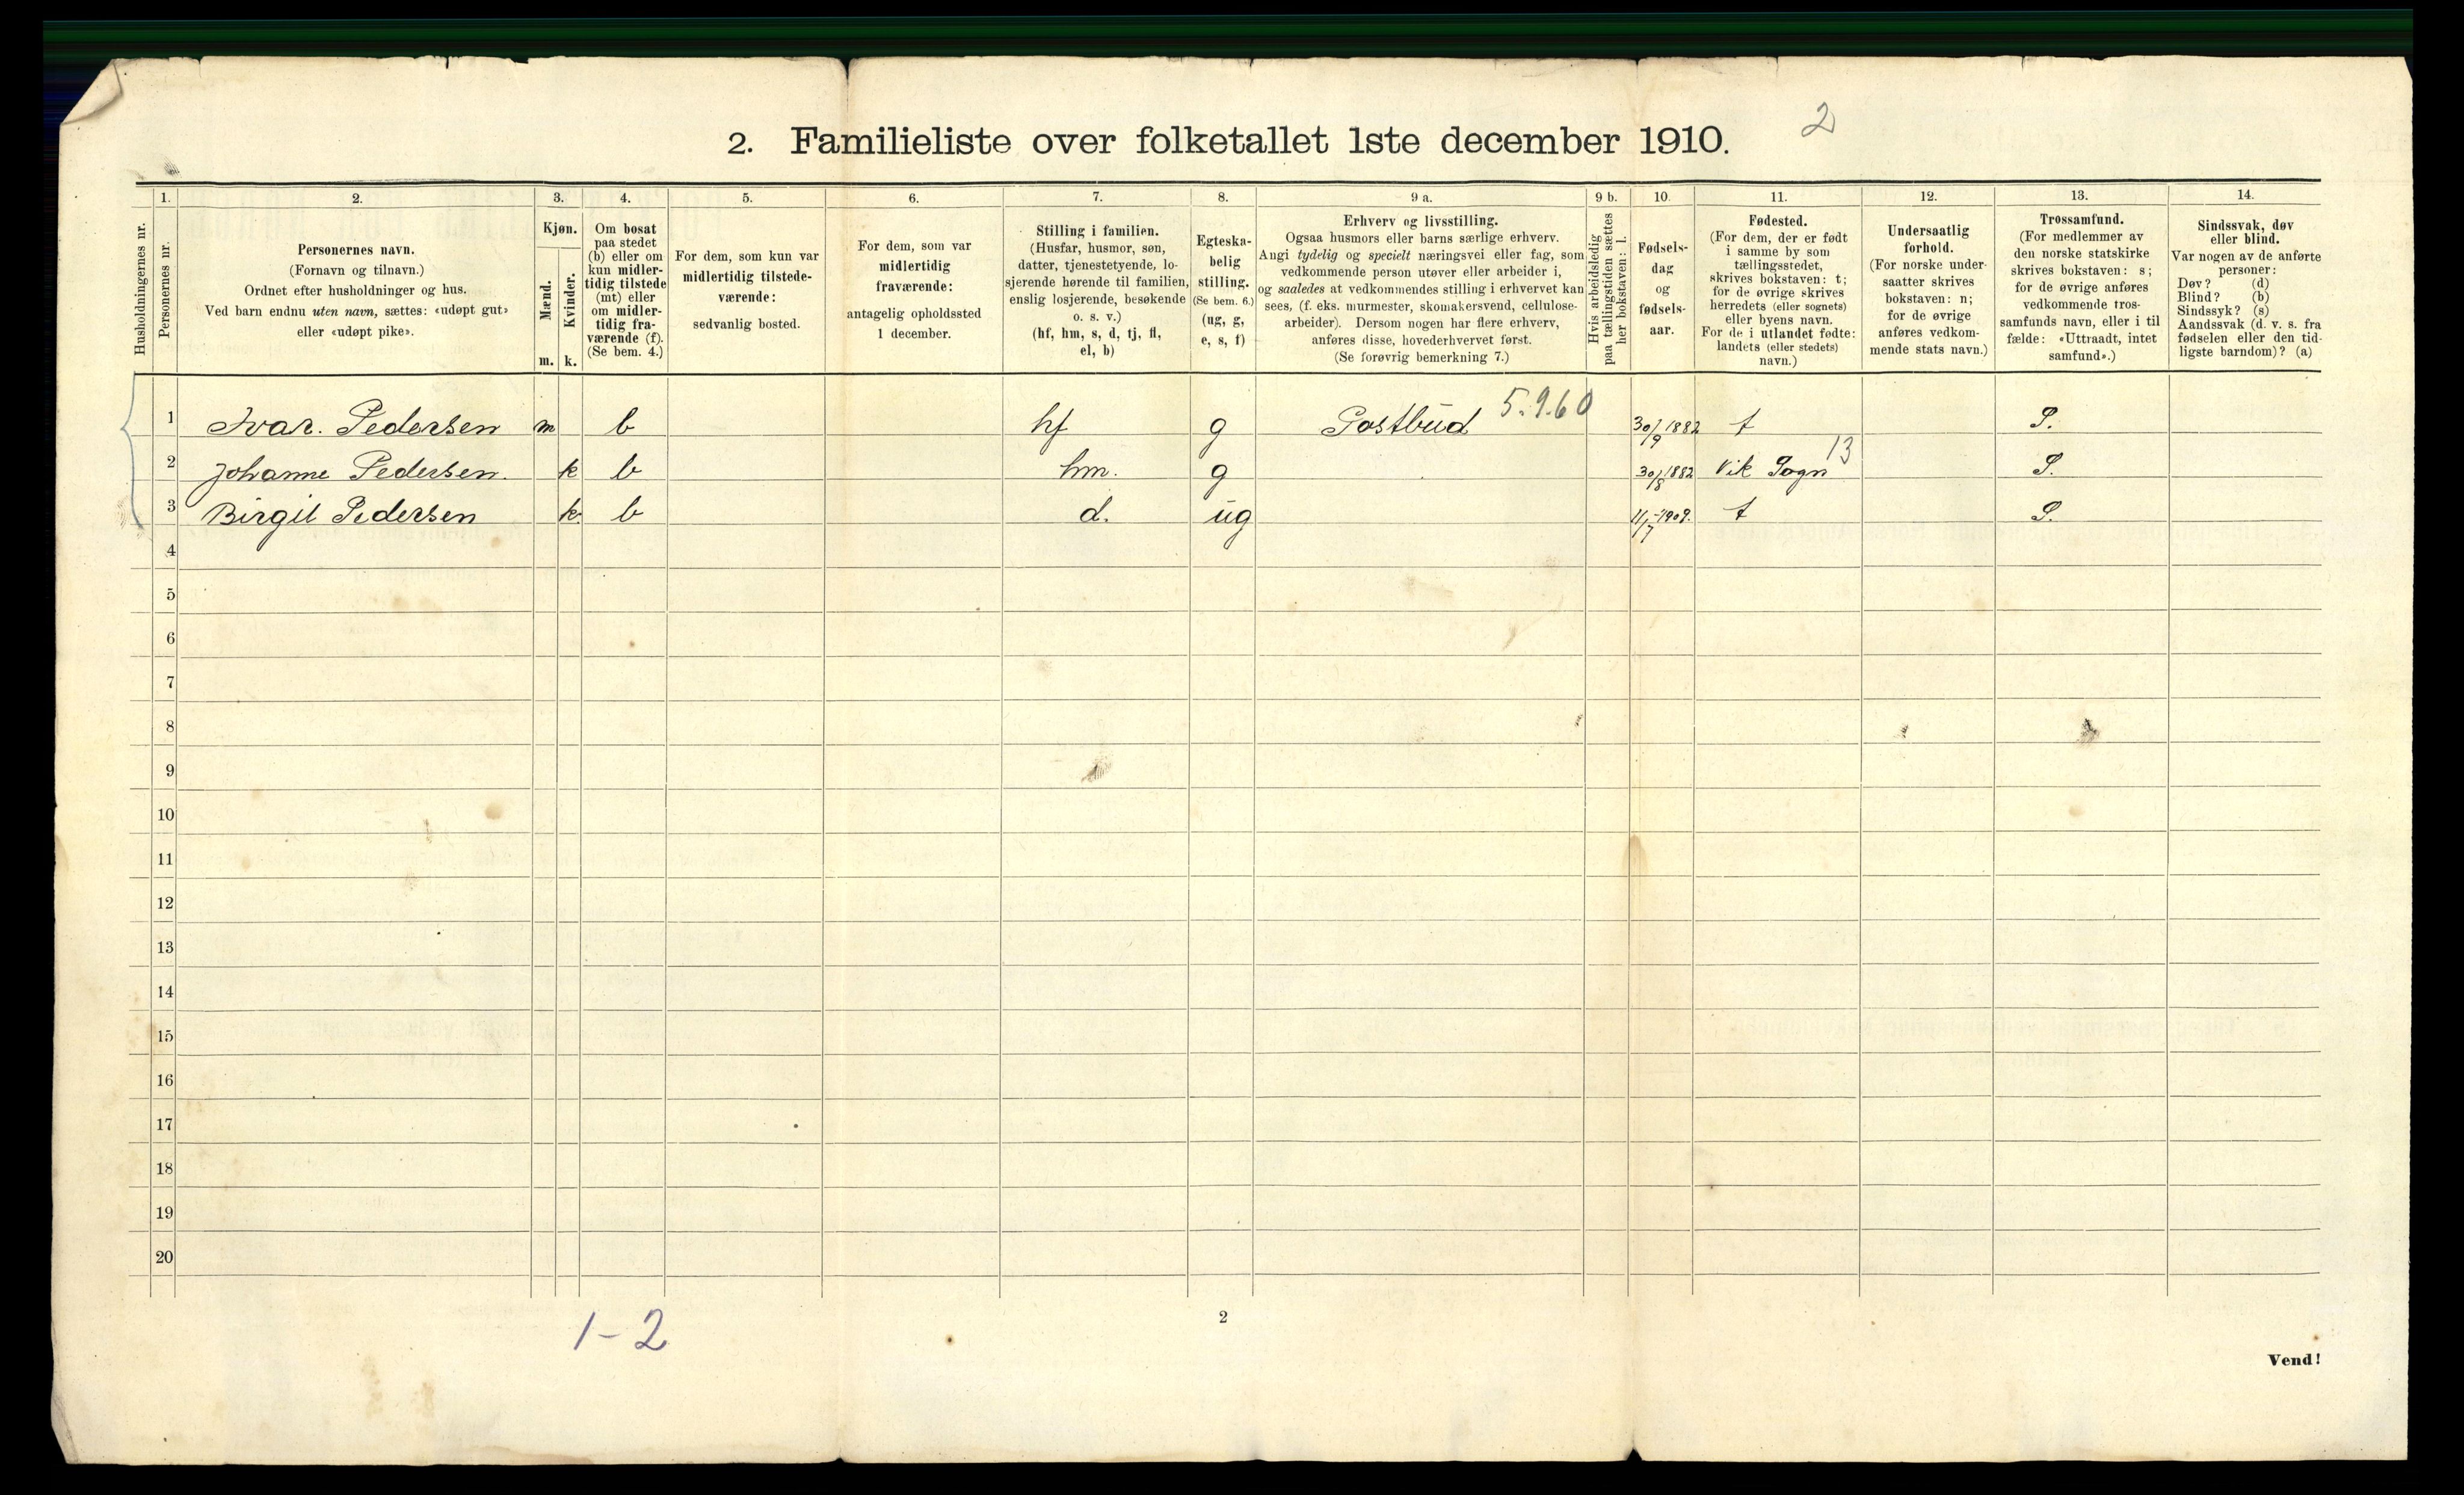 2
2. Familieliste over folketallet 1ste december 1910.
Husholdningernes nr.
1. Personernes nr.
2. Personernes navn.
(Fornavn og tilnavn.)
Ordnet efter husholdninger og hus.
Ved barn endnu uten navn, sættes: «udøpt gut»
eller «udøpt pike».
3. Kjøn.
Mænd. m.
Kvinder. k.
4. Om bosat
paa stedet
(b) eller om
kun midler-
tidig tilstede
(mt) eller
om midler-
tidig fra-
værende (f).
(Se bem. 4.)
5. For dem, som kun var
midlertidig tilstede-
værende:
sedvanlig bosted.
6. For dem, som var
midlertidig
fraværende:
antagelig opholdssted
1 december.
7. Stilling i familien.
(Husfar, husmor, søn,
datter, tjenestetyende, lo-
sjerende hørende til familien,
enslig losjerende, besøkende
o. s. v.)
(hf, hm, s, d, tj, fl,
el, b)
8. Egteska-
belig
stilling.
(Se bem. 6.)
(ug, g,
e, s, f)
9 a. Erhverv og livsstilling.
Ogsaa husmors eller barns særlige erhverv.
Angi tydelig og specielt næringsvei eller fag, som
vedkommende person utøver eller arbeider i,
og saaledes at vedkommendes stilling i erhvervet kan
sees, (f. eks. murmester, skomakersvend, cellulose-
arbeider). Dersom nogen har flere erhverv,
anføres disse, hovederhvervet først.
(Se forøvrig bemerkning 7.)
9 b. Hvis arbeidsledig
paa tællingstiden sættes
her bokstaven: l.
10. Fødsels-
dag
og
fødsels-
aar.
11. Fødested.
(For dem, der er født
i samme by som
tællingsstedet,
skrives bokstaven: t;
for de øvrige skrives
herredets (eller sognets)
eller byens navn.
For de i utlandet fødte:
landets (eller stedets)
navn.)
12. Undersaatlig
forhold.
(For norske under-
saatter skrives
bokstaven: n;
for de øvrige
anføres vedkom-
mende stats navn.)
13. Trossamfund.
(For medlemmer av
den norske statskirke
skrives bokstaven: s;
for de øvrige anføres
vedkommende tros-
samfunds navn, eller i til
fælde: «Uttraadt, intet
samfund».)
14. Sindssvak, døv
eller blind.
Var nogen av de anførte
personer:
Døv? (d)
Blind? (b)
Sindssyk? (s)
Aandssvak (d. v. s. fra
fødselen eller den tid-
ligste barndom)? (a)
1 Ivar. Pedersen m b hf g Postbud 5.9.60 30/9 1882 t S.
2 Johanne Pedersen. k b hm. g 30/8 1882 Vik Sogn 13 S.
3 Birgit Pedersen k. b d. ug 11/7-1909. t S.
4
5
6
7
8
9
10
11
12
13
14
15
16
17
18
19
20
1-2
2
Vend!